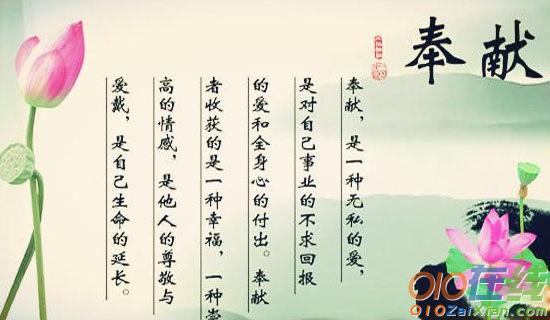 奉献
奉献，是一种无私的爱，
是对自己事业的不求回报
的爱和全身心的付出。奉献
者收获的是一种幸福，一种崇
高的情感，是他人的尊敬与
爱戴，是自己生命的延长。
010在线
010Zaixian.com